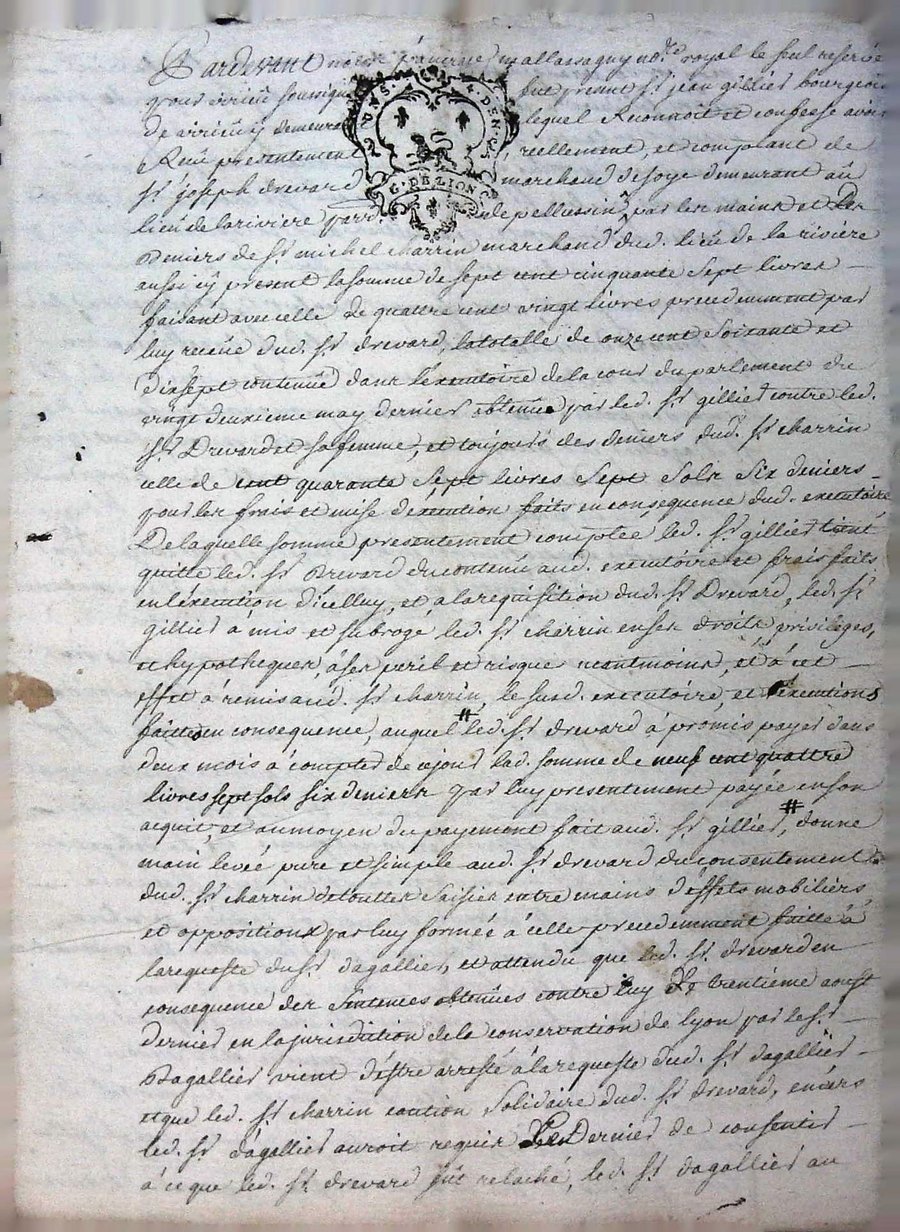 Pardevant nore royal le seul reservé
pour virieu soussigné fut present sr. jean gillier bourgeois
de virieu y demeurant lequel Reconnoit et confesse avoir
Reçu presentement reellement, et comptant de
sr. joseph drevard marchand de soye demeurant au
lieu de la riviere parr. de pellussin, par les mains et Des
Deniers de sr. michel charrin marchand dud. lieu de la riviere
aussi cy present la somme de sept cent cinquante sept livres
faisant avec celle de quattre cent vingt livres precedemment par
luy reçüe dud. sr. drevard, la totalle de onze cent soixante et
dixsept contenüe dans l'executoire de la cour du parlement du
vingt deuxieme may dernier obtenue par led. sr. gillier contre led.
sr. Drevard et sa femme, et toujours des deniers dud. sr. charrin
celle de cent quarante sept livres sept sols six deniers
pour les frais et mise d'execution faits en consequence dud. executoire
De laquelle somme presentement comptée led. sr. gillier tient
quitte led. sr. Drevard du contenu aud. executoire et frais faits
en l'execution d'icelluy, et a la requisition dud. sr. Drevard, led. sr.
gillier a mis et subrogé led. sr. charrin en ses droits, privileges,
et hypotheques, à ses peril et risque neantmoins, et à cet
effet à remis aud. sr. charrin, le susd. executoire, et executions
faites en consequence, auquel # led. sr. drevard à promis payer dans
deux mois à compter de ce jour lad. somme de neuf cent quattre
livres sept sols six deniers par luy presentement payée en son
acquit, et au moyen du payement fait aud. sr. gillier, # donne
main levée pure et simple aud. sr. drevard du consentement
dud. sr. charrin de touttes saisies entre mains d'effets mobiliers
et oppositions par luy formée à celle precedemment faitte à
la requeste du sr. dagallier, et attendu que led. sr. drevard en
consequence des sentences obtenües contre luy Le trentième aoust
dernier en la jurisdiction de la conservation de lyon par le sr.
Dagallier vient d'estre arresté à la requeste dud. sr. dagallier
et que led. sr. charrin caution solidaire dud. sr. drevard, envers
led. sr. dagallier auroit requis Ce Dernier de consentir
à ce que led. sr. drevard fut relaché, led. sr. dagallier au
C. DE LION